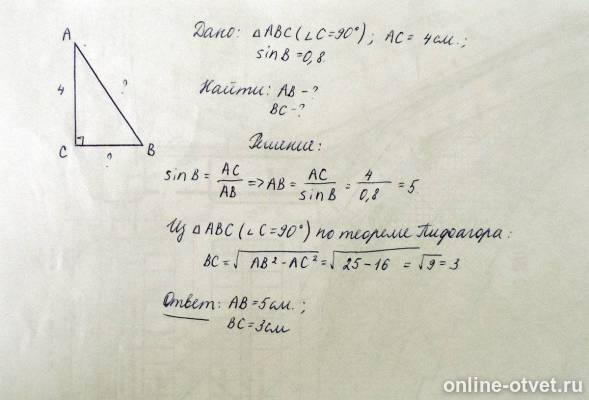 Дано: △ABC (∠C=90°); AC= 4см.;
sinB=0,8.
A
4
?
C
?
B
Найти: AB-?
BC-?
Решение:
sinB = AC/AB => AB = AC/sinB = 4/0,8 = 5
Из △ABC (∠C=90°) по теореме Пифагора:
BC=√AB²-AC² = √25-16 = √9 = 3
Ответ: AB=5см.;
BC=3см
online-otvet.ru